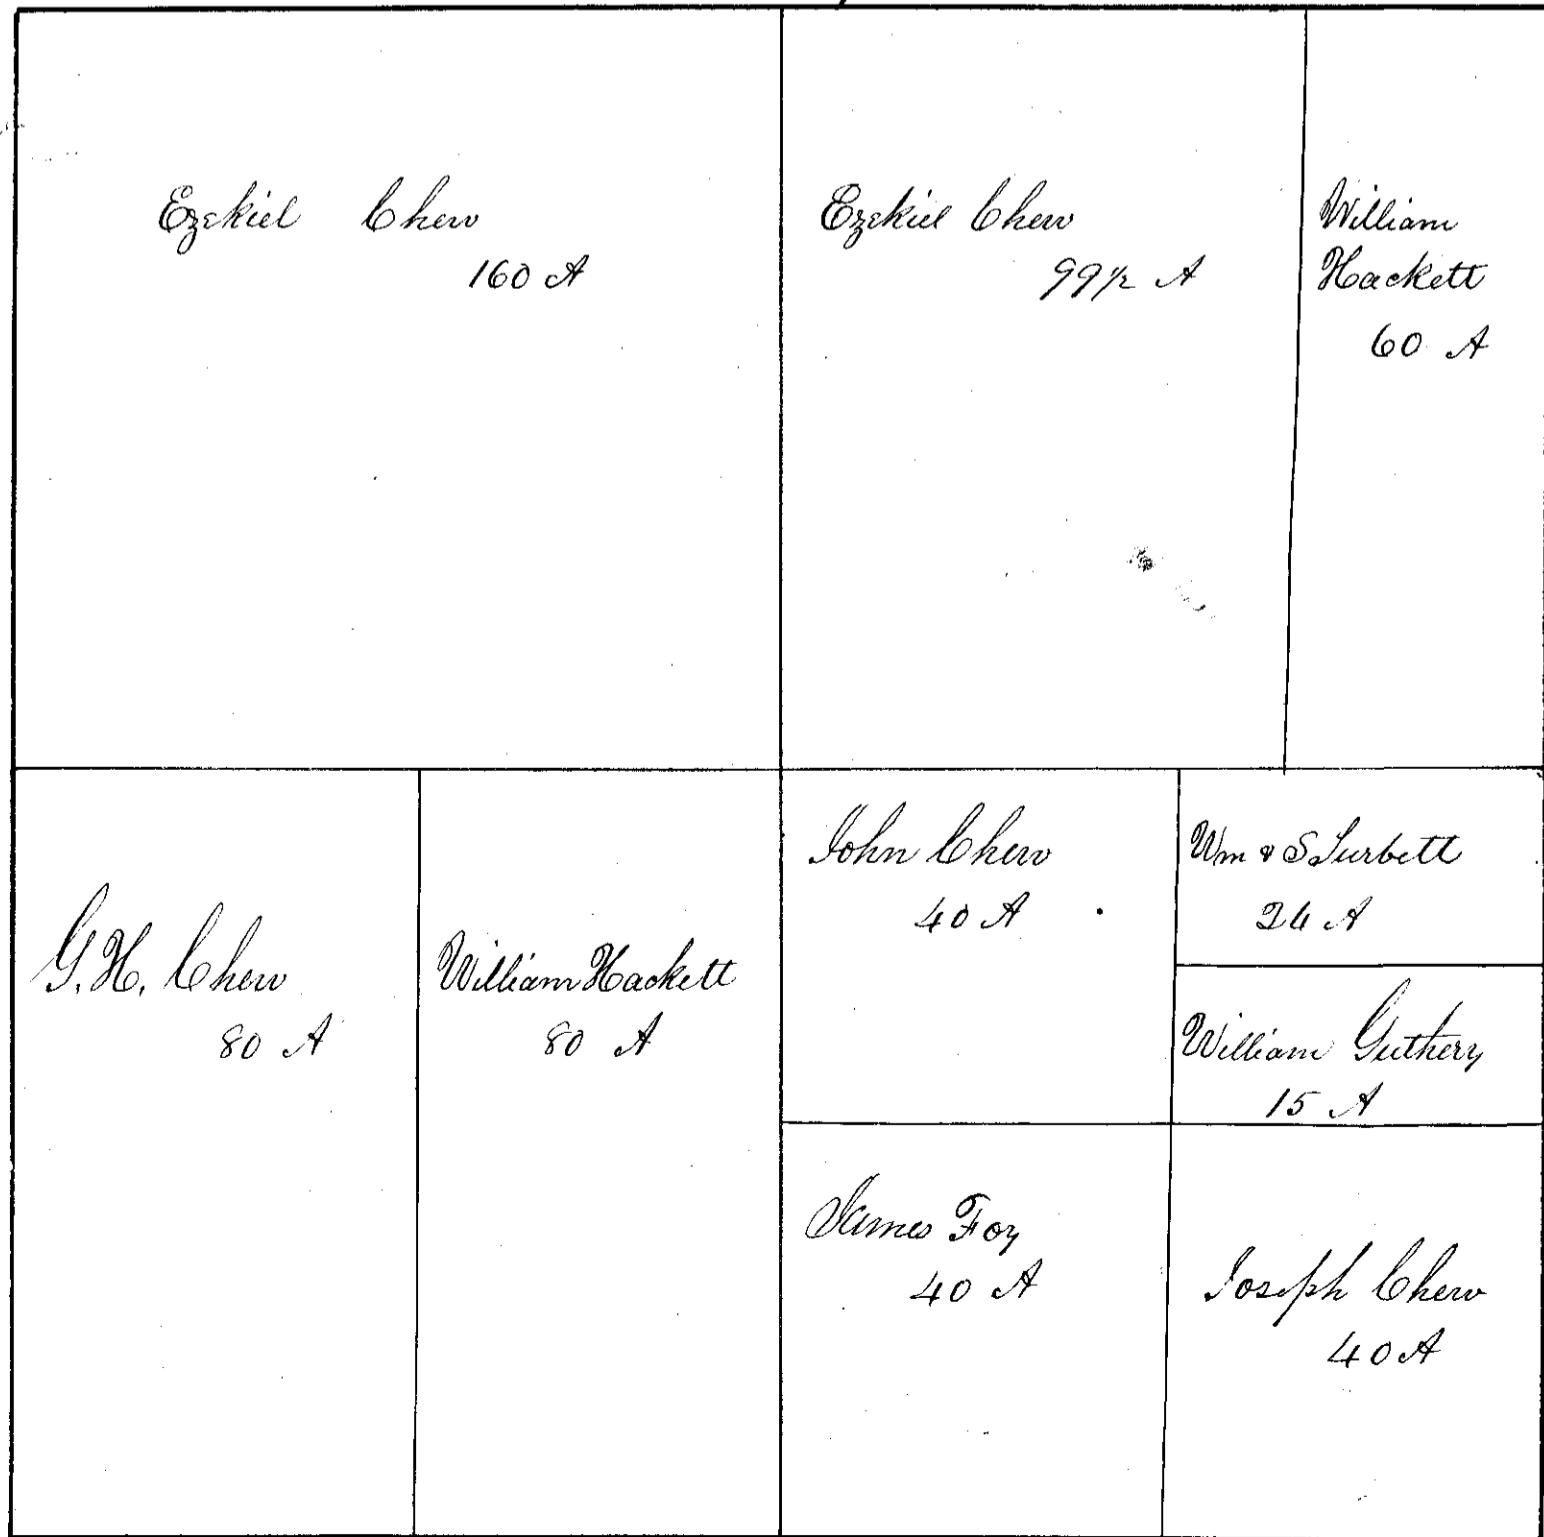 Ezekiel Chew
160 A
Ezekiel Chew
99 1/2 A
William
Hackett
60 A
G. H. Chew
80 A
William Hackett
80 A
John Chew
40 A
Wm & S
A
William Guthery
15 A
James Foy
40 A
Joseph Chew
40 A